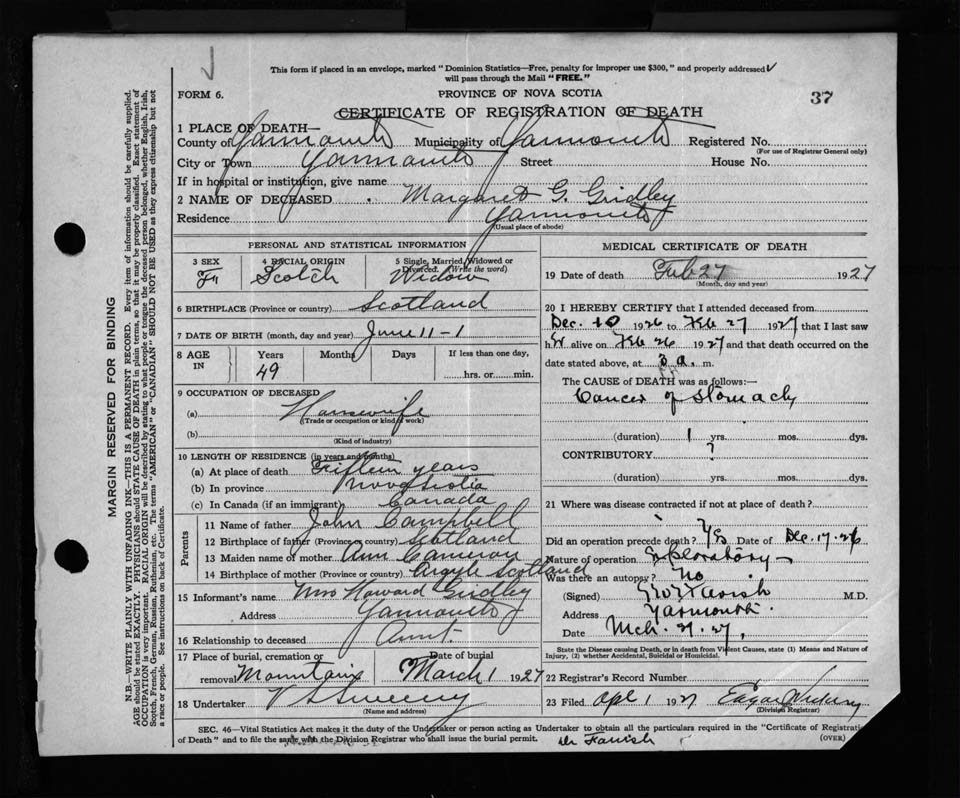 This form if placed in an envelope, marked "Dominion Statistics—Free, penalty for improper use $300," and properly addressed
will pass through the Mail "FREE."
FORM 6.
PROVINCE OF NOVA SCOTIA
37
CERTIFICATE OF REGISTRATION OF DEATH
1 PLACE OF DEATH—
County of Yarmouth Municipality of Yarmouth Registered No.
(For use of Registrar General only)
City or Town Yarmouth Street House No.
If in hospital or institution, give name
2 NAME OF DECEASED Margaret G. Gridley
Residence Yarmouth
(Usual place of abode)
PERSONAL AND STATISTICAL INFORMATION
3 SEX 4 RACIAL ORIGIN 5 Single, Married, Widowed or
Divorced. (Write the word)
F Scotch Widow
6 BIRTHPLACE (Province or country) Scotland
7 DATE OF BIRTH (month, day and year) June 11-1
8 AGE IN Years Months Days If less than one day,
49 hrs. or min.
9 OCCUPATION OF DECEASED
(a) Housewife
(Trade or occupation or kind of work)
(b)
(Kind of industry)
10 LENGTH OF RESIDENCE (in years and months)
(a) At place of death Fifteen years
(b) In province Nova Scotia
(c) In Canada (if an immigrant) Canada
Parents
11 Name of father John Campbell
12 Birthplace of father (Province or country) Scotland
13 Maiden name of mother Ann Cameron
14 Birthplace of mother (Province or country) Argyle Scotland
15 Informant's name Mrs Howard Gridley
Address Yarmouth
16 Relationship to deceased Aunt.
17 Place of burial, cremation or Date of burial
removal Mountain March 1 1927
18 Undertaker V S Sweeny
(Name and address)
MEDICAL CERTIFICATE OF DEATH
19 Date of death Feb 27 1927
(Month, day and year)
20 I HEREBY CERTIFY that I attended deceased from
Dec. 10 1926 to Feb 27 1927 that I last saw
her alive on Feb 26 1927 and that death occurred on the
date stated above, at 3 a. m.
The CAUSE of DEATH was as follows:—
Cancer of Stomach
(duration) 1 yrs. mos. dys.
CONTRIBUTORY ?
(duration) yrs. mos. dys.
21 Where was disease contracted if not at place of death?
Did an operation precede death? Yes Date of Dec. 17. 26
Nature of operation Exploratory
Was there an autopsy? No
(Signed) Farish M.D.
Address Yarmouth.
Date Mch. 21. 27.
State the Disease causing Death, or in death from Violent Causes, state (1) Means and Nature of
Injury, (2) whether Accidental, Suicidal or Homicidal.
22 Registrar's Record Number
23 Filed Apl 1 1927 Edgar
(Division Registrar)
SEC. 46—Vital Statistics Act makes it the duty of the Undertaker or person acting as Undertaker to obtain all the particulars required in the "Certificate of Registration
of Death" and to file the same with the Division Registrar who shall issue the burial permit. Dr Farish (OVER)
MARGIN RESERVED FOR BINDING
N.B.—WRITE PLAINLY WITH UNFADING INK—THIS IS A PERMANENT RECORD. Every item of information should be carefully supplied.
AGE should be stated EXACTLY. PHYSICIANS should STATE CAUSE OF DEATH in plain terms, so that it may be properly classified. Exact statement of
OCCUPATION is very important. RACIAL ORIGIN will be described by stating to what people or tongue the deceased person belonged, whether English, Irish,
Scotch, French, German, Russian, Ruthenian, etc. The terms "AMERICAN" or "CANADIAN" SHOULD NOT BE USED as they express citizenship but not
a race or people. See instructions on back of Certificate.